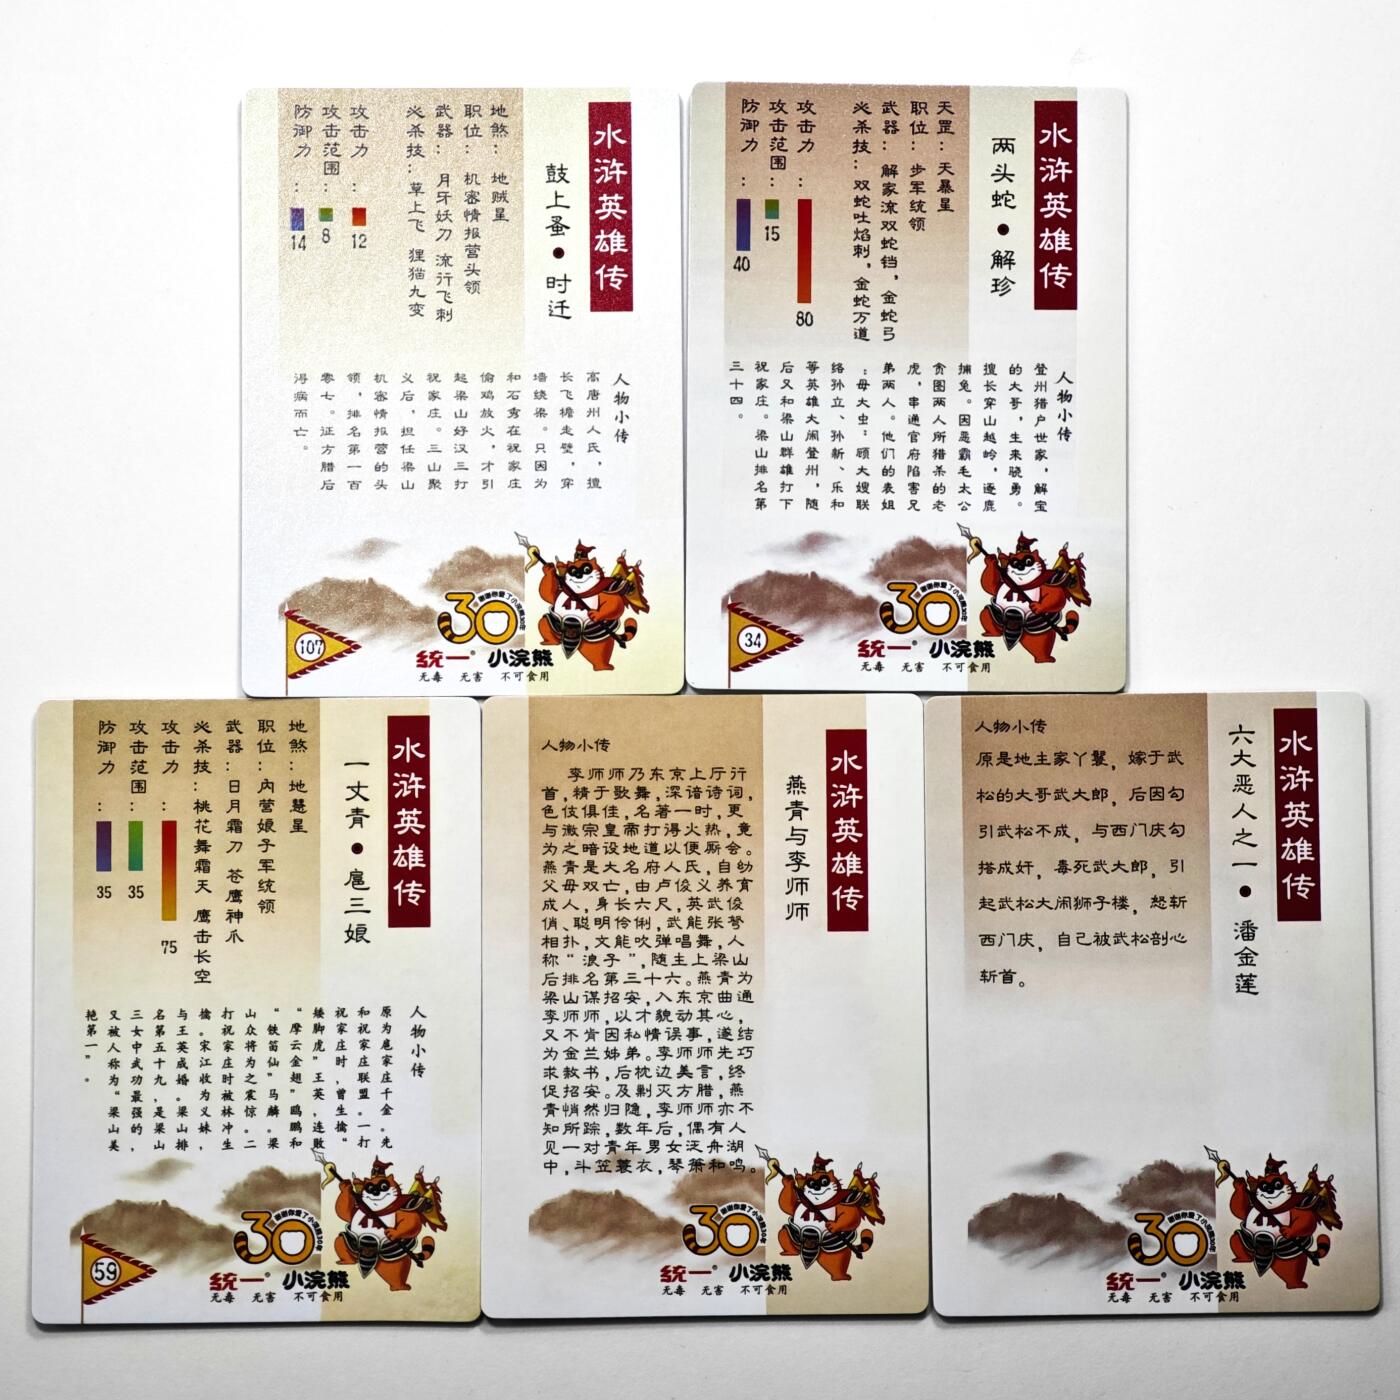 水浒英雄传
鼓上蚤•时迁
地煞：地贼星
职位：机密情报营头领
武器：月牙妖刀 流行飞刺
必杀技：草上飞 狸猫九变
攻击力：12
攻击范围：8
防御力：14
人物小传
高唐州人氏，擅
长飞檐走壁，穿
墙绕梁。只因为
和石秀在祝家庄
偷鸡放火，才引
起梁山好汉三打
祝家庄。三山聚
义后，担任梁山
机密情报营的头
领，排名第一百
零七。征方腊后
得病而亡。
107
30
谢谢你爱了小浣熊30年
统一 小浣熊
无毒 无害 不可食用
水浒英雄传
两头蛇•解珍
天罡：天暴星
职位：步军统领
武器：解家流双蛇铛，金蛇弓
必杀技：双蛇吐焰刺，金蛇万道
攻击力：80
攻击范围：15
防御力：40
人物小传
登州猎户世家，解宝
的大哥，生来骁勇。
擅长穿山越岭，逐鹿
捕兔。因恶霸毛太公
贪图两人所猎杀的老
虎，串通官府陷害兄
弟两人。他们的表姐
：母大虫：顾大嫂联
络孙立、孙新、乐和
等英雄大闹登州，随
后又和梁山群雄打下
祝家庄。梁山排名第
三十四。
34
30
谢谢你爱了小浣熊30年
统一 小浣熊
无毒 无害 不可食用
水浒英雄传
一丈青•扈三娘
地煞：地慧星
职位：内营娘子军统领
武器：日月霜刀 苍鹰神爪
必杀技：桃花舞霜天 鹰击长空
攻击力：75
攻击范围：35
防御力：35
人物小传
原为扈家庄千金。先
和祝家庄联盟。一打
祝家庄时，曾生擒“
矮脚虎”王英，连败
“摩云金翅”鸥鹏和
“铁笛仙”马麟。梁
山众将为之震惊。二
打祝家庄时被林冲生
擒。宋江收为义妹，
与王英成婚。梁山排
名第五十九，是梁山
三女中武功最强的，
又被人称为“梁山美
艳第一”。
59
30
谢谢你爱了小浣熊30年
统一 小浣熊
无毒 无害 不可食用
水浒英雄传
燕青与李师师
人物小传
李师师乃东京上厅行
首，精于歌舞，深谙诗词，
色伎俱佳，名著一时，更
与徽宗皇帝打得火热，竟
为之暗设地道以便厮会。
燕青是大名府人氏，自幼
父母双亡，由卢俊义养育
成人，身长六尺，英武俊
俏、聪明伶俐，武能张弩
相扑，文能吹弹唱舞，人
称“浪子”，随主上梁山
后排名第三十六。燕青为
梁山谋招安，入东京曲通
李师师，以才貌动其心，
又不肯因私情误事，遂结
为金兰姊弟。李师师先巧
求赦书，后枕边美言，终
促招安。及剿灭方腊，燕
青悄然归隐，李师师亦不
知所踪，数年后，偶有人
见一对青年男女泛舟湖
中，斗笠蓑衣，琴萧和鸣。
30
谢谢你爱了小浣熊30年
统一 小浣熊
无毒 无害 不可食用
水浒英雄传
六大恶人之一•潘金莲
人物小传
原是地主家丫鬟，嫁于武
松的大哥武大郎，后因勾
引武松不成，与西门庆勾
搭成奸，毒死武大郎，引
起武松大闹狮子楼，怒斩
西门庆，自己被武松剖心
斩首。
30
谢谢你爱了小浣熊30年
统一 小浣熊
无毒 无害 不可食用